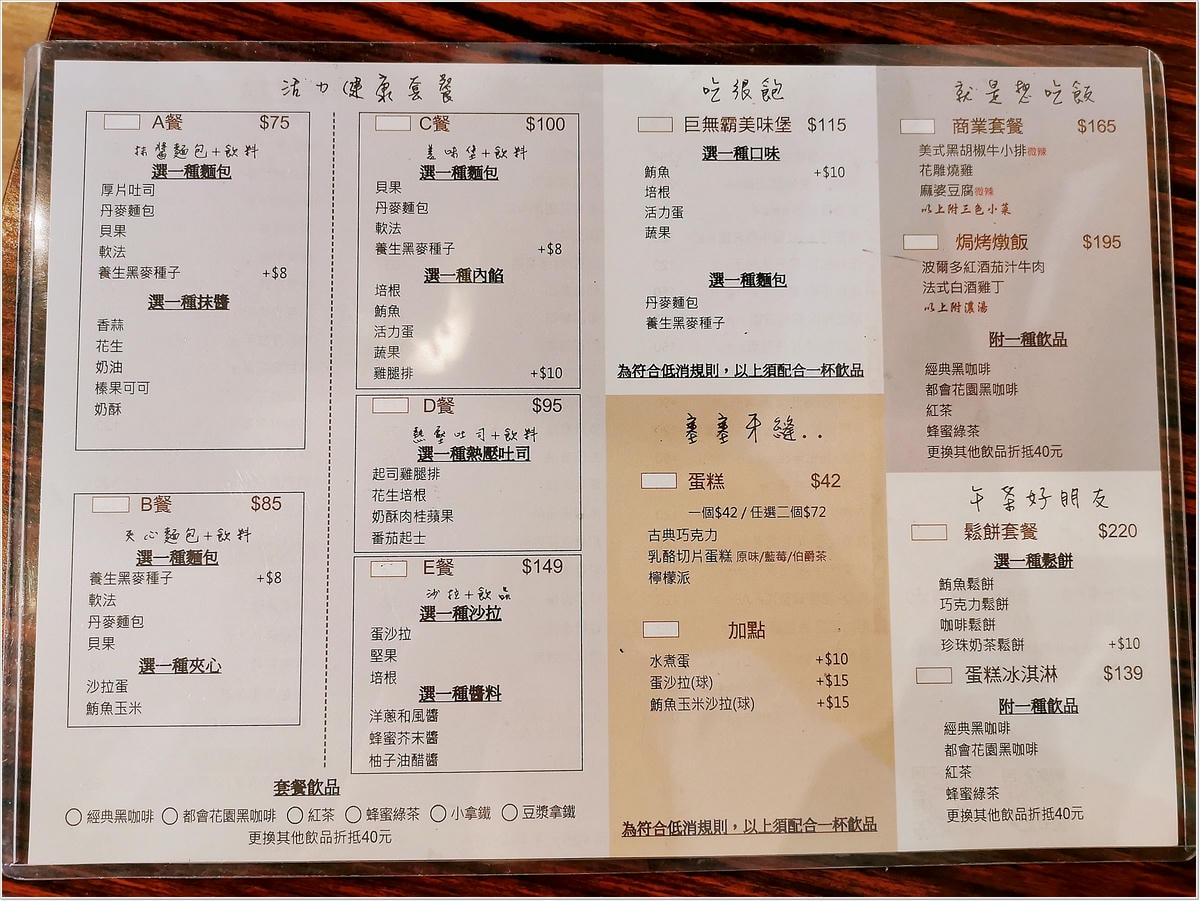 活力健康套餐
A餐 $75
抹醬麵包+飲料
選一種麵包
厚片吐司
丹麥麵包
貝果
軟法
養生黑麥種子 +$8
選一種抹醬
香蒜
花生
奶油
榛果可可
奶酥
B餐 $85
夾心麵包+飲料
選一種麵包
養生黑麥種子 +$8
軟法
丹麥麵包
貝果
選一種夾心
沙拉蛋
鮪魚玉米
C餐 $100
美味堡+飲料
選一種麵包
貝果
丹麥麵包
軟法
養生黑麥種子 +$8
選一種內餡
培根
鮪魚
活力蛋
蔬果
雞腿排 +$10
D餐 $95
熱壓吐司+飲料
選一種熱壓吐司
起司雞腿排
花生培根
奶酥肉桂蘋果
番茄起士
E餐 $149
沙拉+飲品
選一種沙拉
蛋沙拉
堅果
培根
選一種醬料
洋蔥和風醬
蜂蜜芥末醬
柚子油醋醬
套餐飲品
經典黑咖啡 都會花園黑咖啡 紅茶 蜂蜜綠茶 小拿鐵 豆漿拿鐵
更換其他飲品折抵40元
吃很飽
巨無霸美味堡 $115
選一種口味
鮪魚 +$10
培根
活力蛋
蔬果
選一種麵包
丹麥麵包
養生黑麥種子
為符合低消規則，以上須配合一杯飲品
塞塞牙縫..
蛋糕 $42
一個$42 / 任選二個$72
古典巧克力
乳酪切片蛋糕 原味/藍莓/伯爵茶
檸檬派
加點
水煮蛋 +$10
蛋沙拉(球) +$15
鮪魚玉米沙拉(球) +$15
為符合低消規則，以上須配合一杯飲品
就是想吃飯
商業套餐 $165
美式黑胡椒牛小排微辣
花雕燒雞
麻婆豆腐微辣
以上附三色小菜
焗烤燉飯 $195
波爾多紅酒茄汁牛肉
法式白酒雞丁
以上附濃湯
附一種飲品
經典黑咖啡
都會花園黑咖啡
紅茶
蜂蜜綠茶
更換其他飲品折抵40元
午茶好朋友
鬆餅套餐 $220
選一種鬆餅
鮪魚鬆餅
巧克力鬆餅
咖啡鬆餅
珍珠奶茶鬆餅 +$10
蛋糕冰淇淋 $139
附一種飲品
經典黑咖啡
都會花園黑咖啡
紅茶
蜂蜜綠茶
更換其他飲品折抵40元